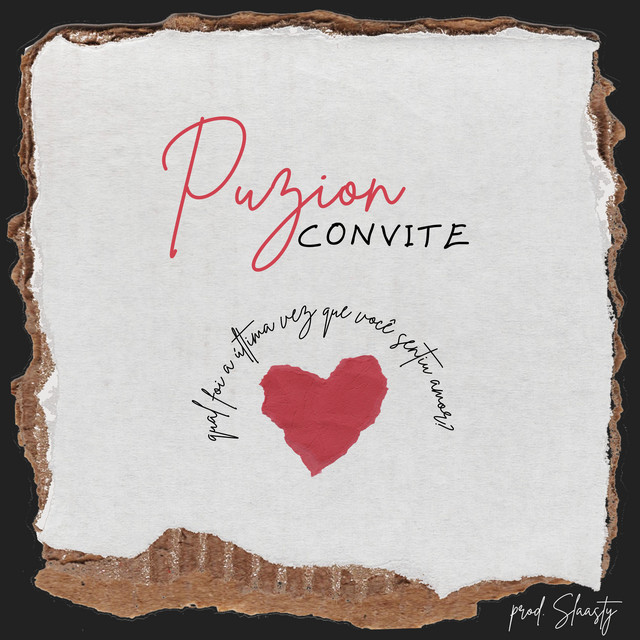 Puzion
CONVITE
qual foi a última vez que você sentiu amor?
prod. Slaasty